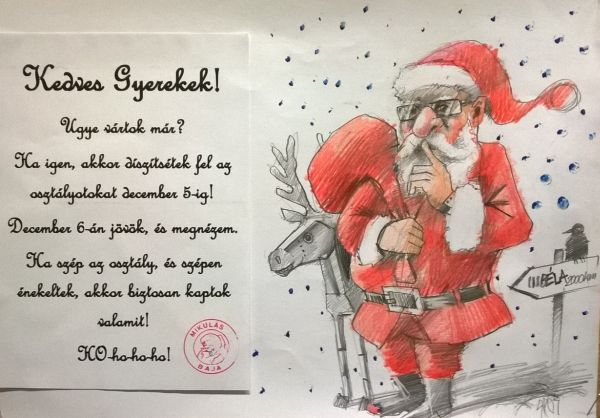 Kedves Gyerekek!
Ugye vártok már?
Ha igen, akkor díszítsétek fel az
osztályotokat december 5-ig!
December 6-án jövök, és megnézem.
Ha szép az osztály, és szépen
énekeltek, akkor biztosan kaptok
valamit!
HO-ho-ho-ho!
MIKULÁS
BAJA
BÉLA